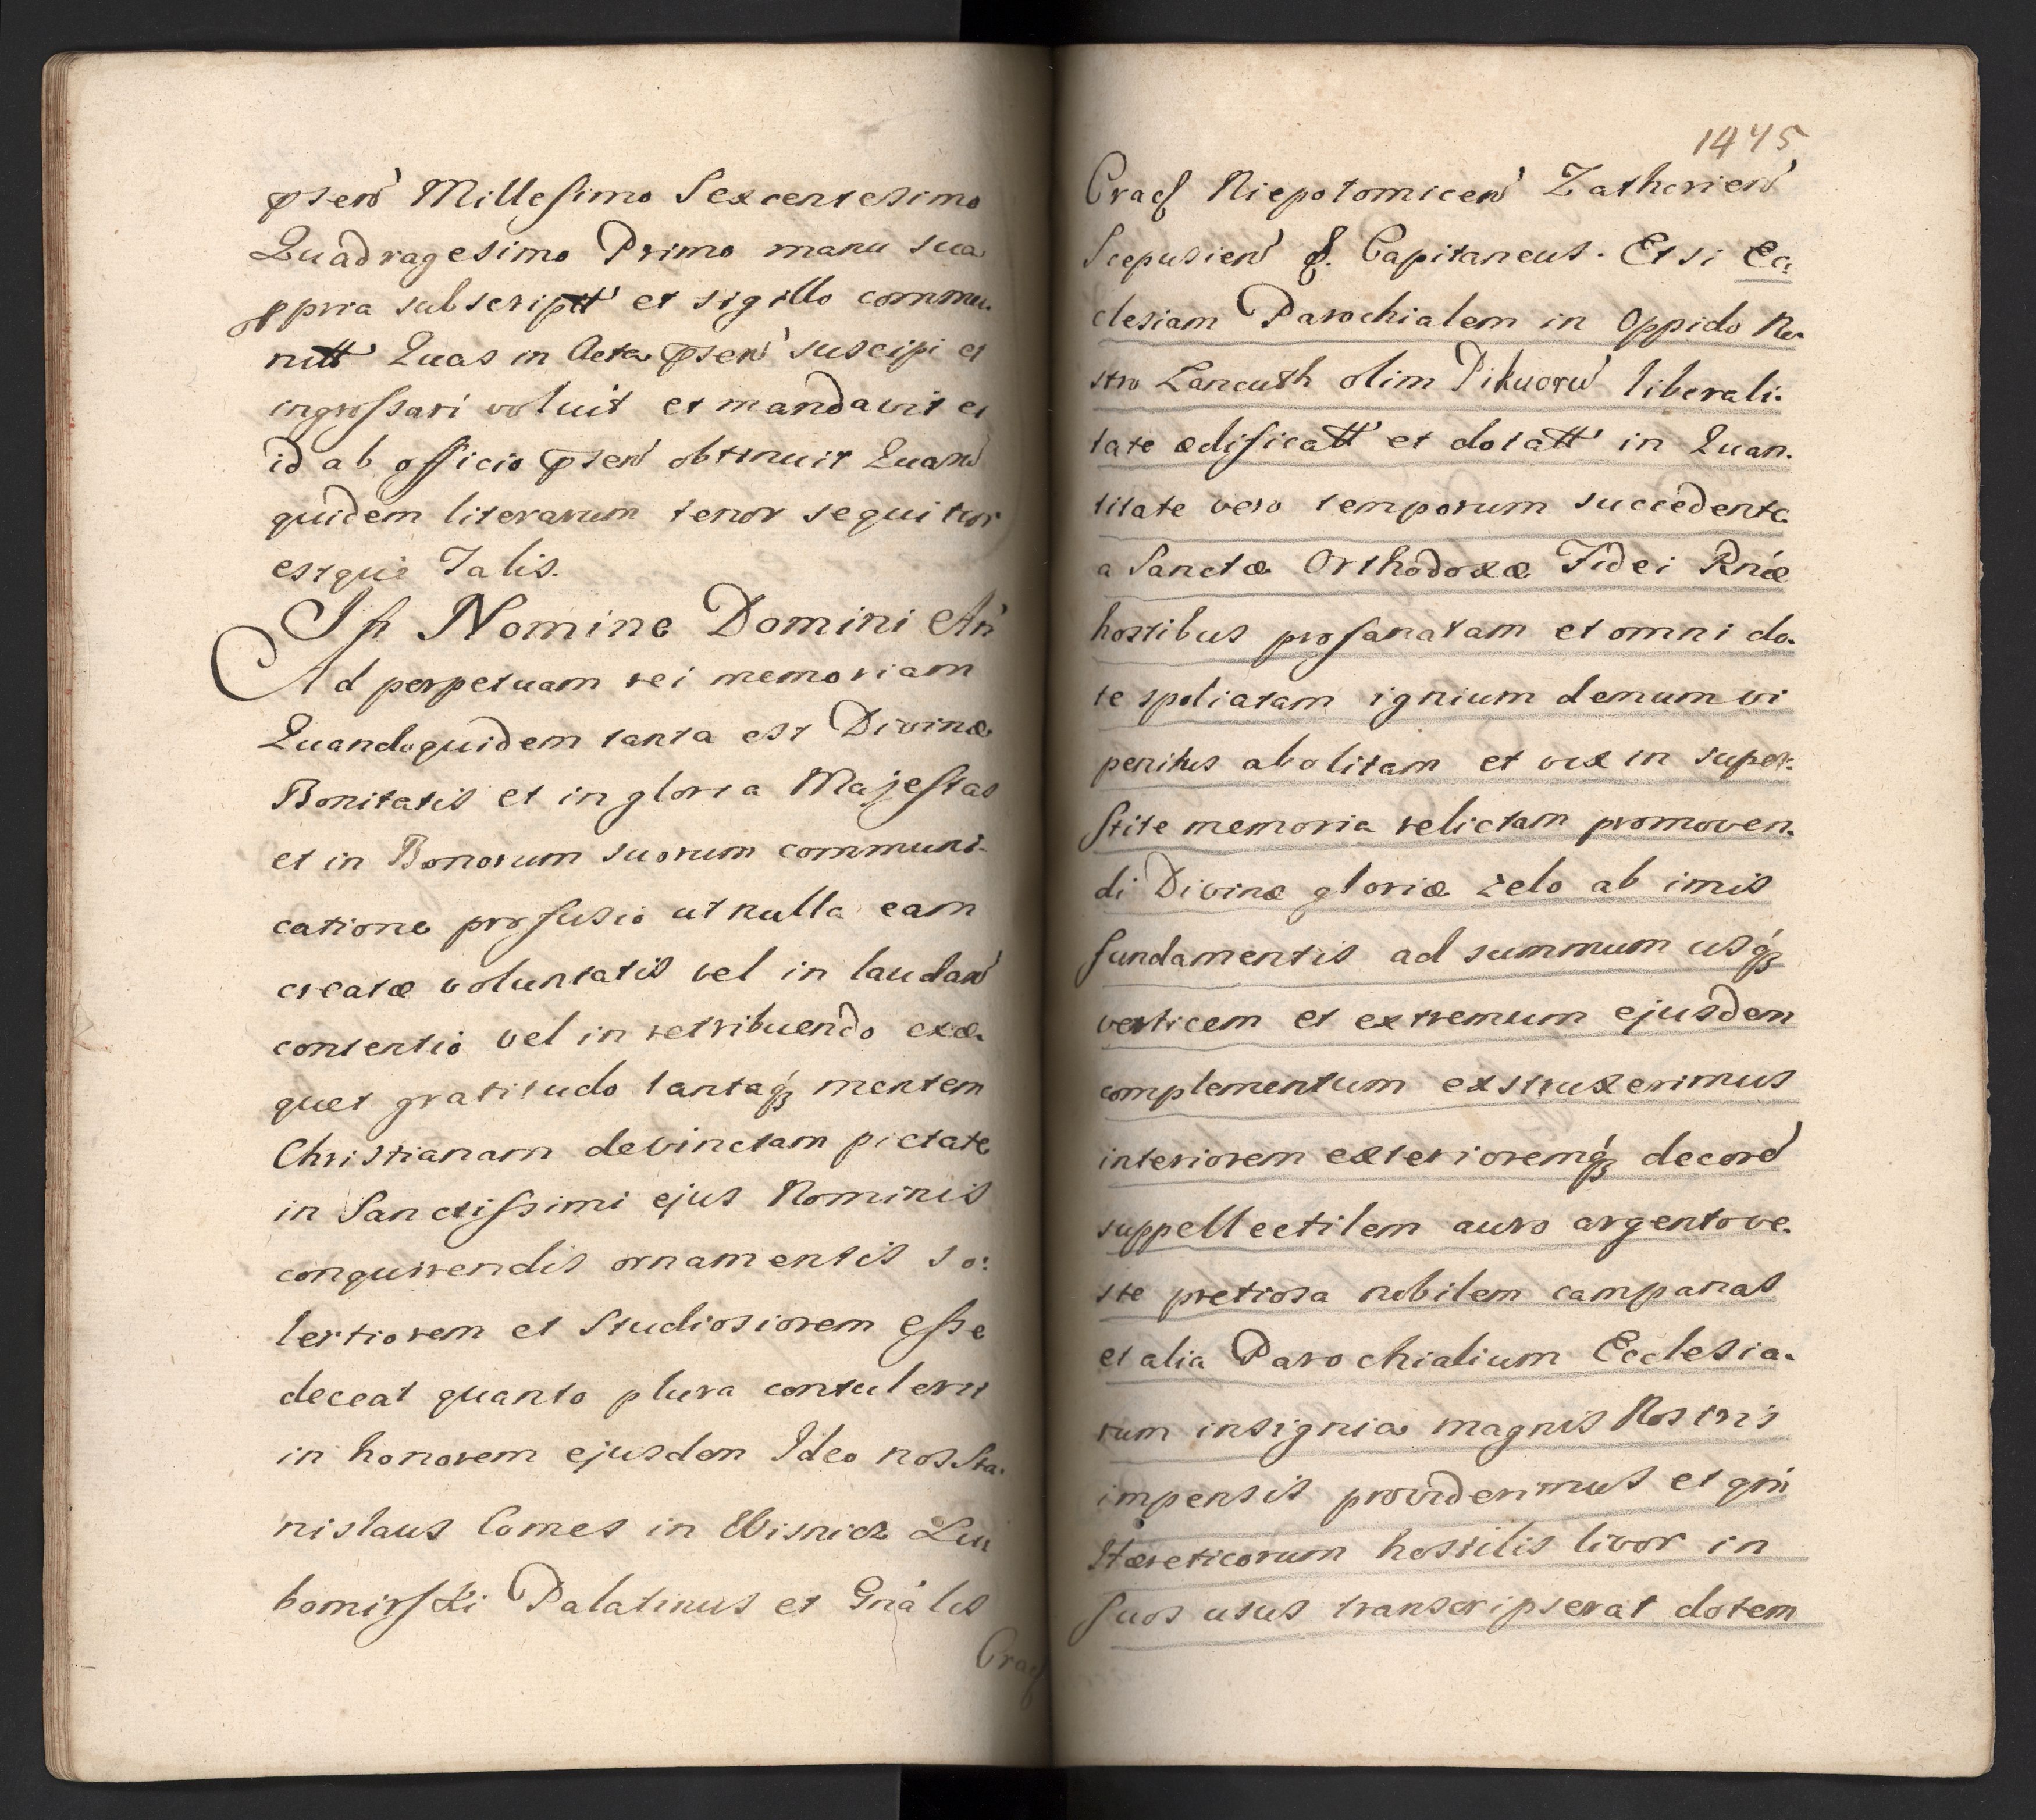 pſen̄ Milleſimo Sexcentesimo
Quadragesimo Primo manu sua
ppria subscriptt et sigillo commu.
nitt Quas in Acta pſen̄ suscipi et
ingroſsari voluit et mandavit et
id ab officio pſen̄ obtinuit Quarū
quidem literarum tenor sequitur
estque Talis.
In Nomine Domini Am̄
Ad perpetuam rei memoriam
Quandoquidem tanta est Divinæ
Bonitatis et in gloria Majeſtas
et in Bonorum suorum communi-
catione profusio ut nulla eam
creatæ voluntatis vel in laudan̄
contentio vel in retribuendo exæ.
quet gratitudo tantaq́ꝫ mentem
Christianam devinctam pietate
in Sanctiſsimi ejus Nominis
conquirendis ornamentis so:
lertiorem et Studiosiorem eſse
deceat quanto plura contulerit
in honorem ejusdem Ideo nos Sta.
nislaus Comes in Wisnicz Lu
bomirſki Palatinus et Gnális
Crac
1445
Crac Niepolomicen̄ Zathorien̄
Scepusien̄ &. Capitaneus. Et si Ec:
clesiam Parochialem in Oppido No.
stro Lancuth olim Pikuorū liberali.
tate ædificatt et dotatt in Quan.
titate vero temporum succedente
a Sanctæ Orthodoxæ Fidei Rnǽ
hostibus profanatam et omni do.
te spoliatam ignium demum vi
penitus abolitam et vix in super.
ſtite memoria relictam promoven.
di Divinæ gloriæ zelo ab imis
fundamentis ad summum usq́ꝫ
verticem et extremum ejusdem
complementum exstruxerimus
interiorem exterioremq́ꝫ decorē
suppellectilem auro argento ve.
ste pretiosa nobilem campanas
et alia Parochialium Ecclesia.
rum insignia magnis Nostris
impensis providerimus et qm̄
Hæreticorum hostilis livor in
ſuos usus transcripserat dotem